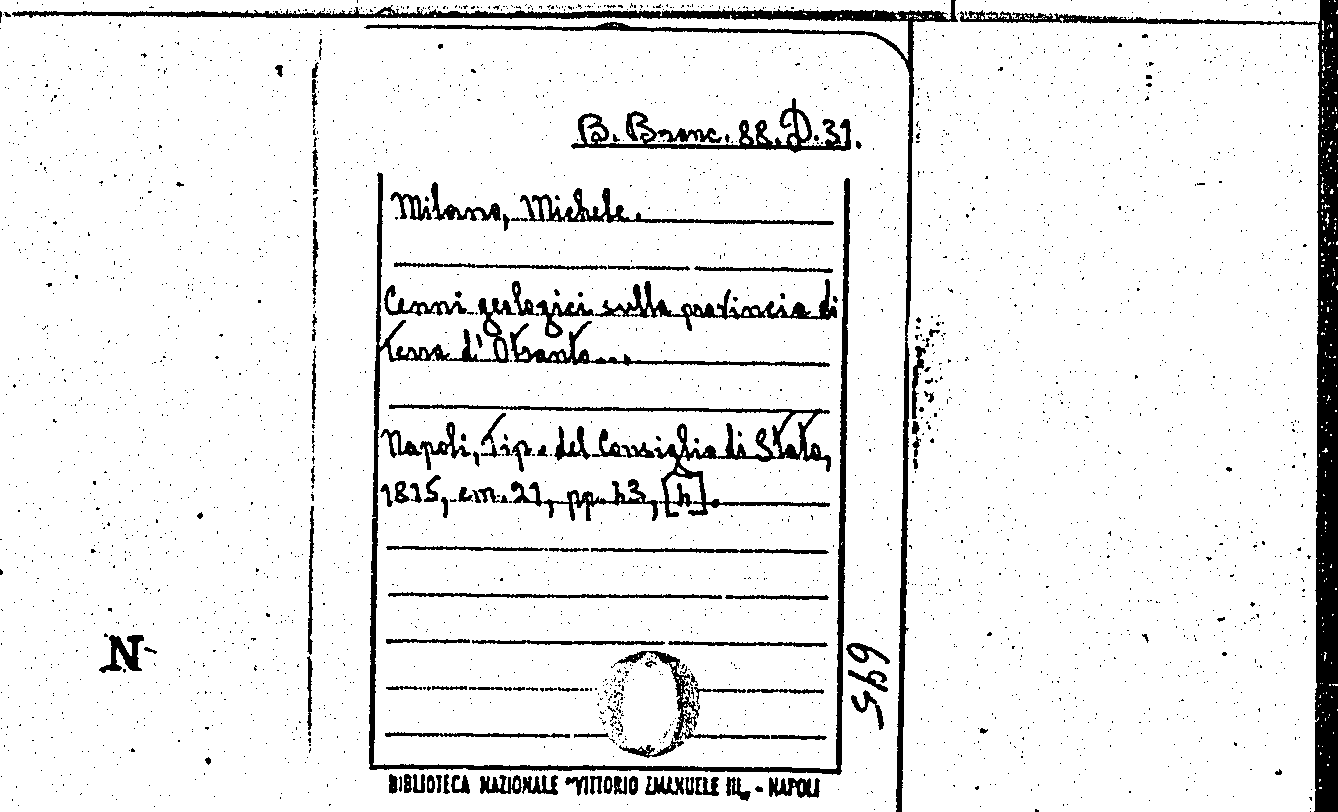 B. Branc. 88. D. 31.
Milano, Michele.
Cenni geologici sulla provincia di
Terra d'Otranto...
Napoli, Tip. del Consiglio di Stato,
1815, cm. 21, pp. 43, [4].
N
695
BIBLIOTECA NAZIONALE "VITTORIO EMANUELE III„ - NAPOLI